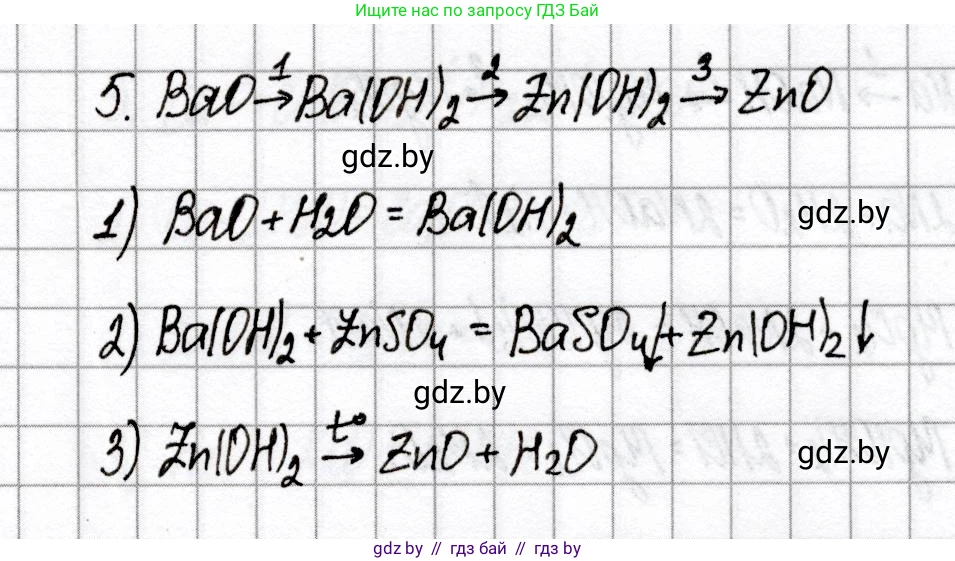 Ищите нас по запросу ГДЗ Бай
5. BaO →¹ Ba(OH)₂ →² Zn(OH)₂ →³ ZnO
gdz.by
1) BaO + H₂O = Ba(OH)₂ gdz.by
2) Ba(OH)₂ + ZnSO₄ = BaSO₄↓ + Zn(OH)₂↓
gdz.by
3) Zn(OH)₂ →t° ZnO + H₂O gdz.by
gdz.by // гдз бай // gdz by